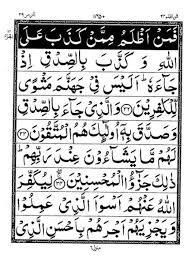 فَمَنْ اَظْلَمُ مِمَّنْ كَذَبَ عَلَى
اللّٰهِ وَ كَذَّبَ بِالصِّدْقِ اِذْ
جَآءَهٗ ؕ اَلَيْسَ فِيْ جَهَنَّمَ مَثْوًى
لِّلْكٰفِرِيْنَ ﴿٣٢﴾ وَالَّذِيْ جَآءَ بِالصِّدْقِ
وَصَدَّقَ بِهٖۤ اُولٰٓئِكَ هُمُ الْمُتَّقُوْنَ ﴿٣٣﴾
لَهُمْ مَّا يَشَآءُوْنَ عِنْدَ رَبِّهِمْ ؕ
ذٰلِكَ جَزٰٓؤُا الْمُحْسِنِيْنَ ﴿٣٤﴾ لِيُكَفِّرَ
اللّٰهُ عَنْهُمْ اَسْوَاَ الَّذِيْ عَمِلُوْا
وَيَجْزِيَهُمْ اَجْرَهُمْ بِاَحْسَنِ الَّذِيْ